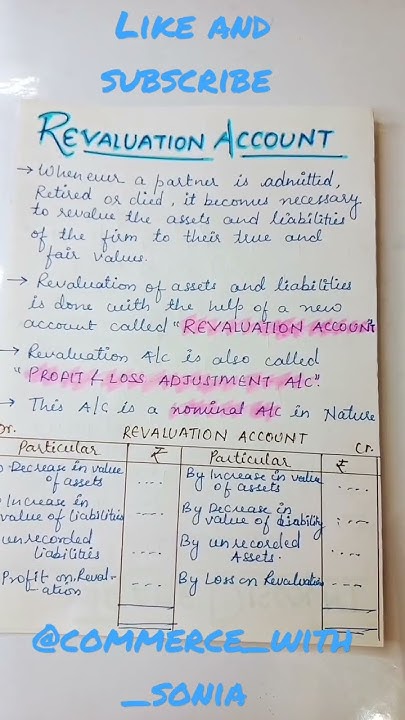 LIKE AND
SUBSCRIBE
REVALUATION ACCOUNT
→ Whenever a partner is admitted,
Retired or died, it becomes necessary
to revalue the assets and liabilities
of the firm to their true and
fair values.
→ Revaluation of assets and liabilities
is done with the help of a new
account called "REVALUATION ACCOUNT
→ Revaluation A/c is also called
"PROFIT & LOSS ADJUSTMENT A/C".
→ This A/c is a nominal A/c in Nature
Dr. REVALUATION ACCOUNT Cr.
Particular ₹ Particular ₹
o Decrease in value
of assets .... By Increase in value
of assets ....
Increase in
value of liabilities .... By Decrease in
value of liability ....
unrecorded
liabilities .... By unrecorded
Assets. ....
Profit on Reval-
ation .... By Loss on Revaluation ....
@COMMERCE_WITH
_SONIA